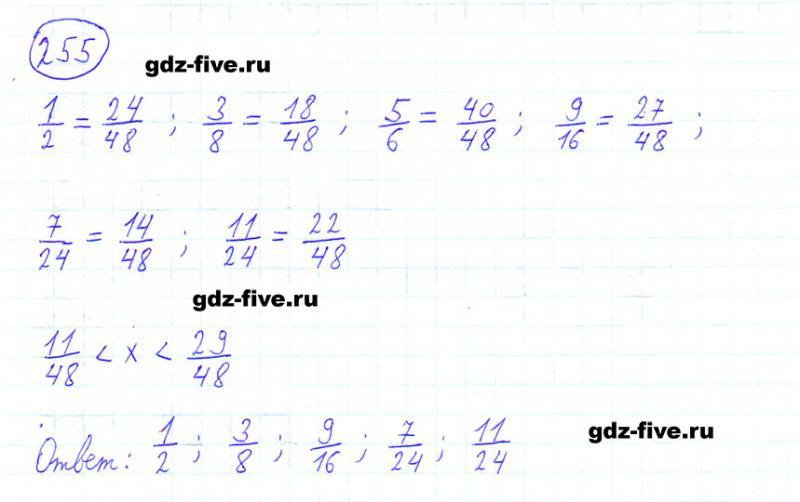 255
gdz-five.ru
1/2 = 24/48 ; 3/8 = 18/48 ; 5/6 = 40/48 ; 9/16 = 27/48 ;
7/24 = 14/48 ; 11/24 = 22/48
gdz-five.ru
11/48 < x < 29/48
Ответ: 1/2 ; 3/8 ; 9/16 ; 7/24 ; 11/24
gdz-five.ru